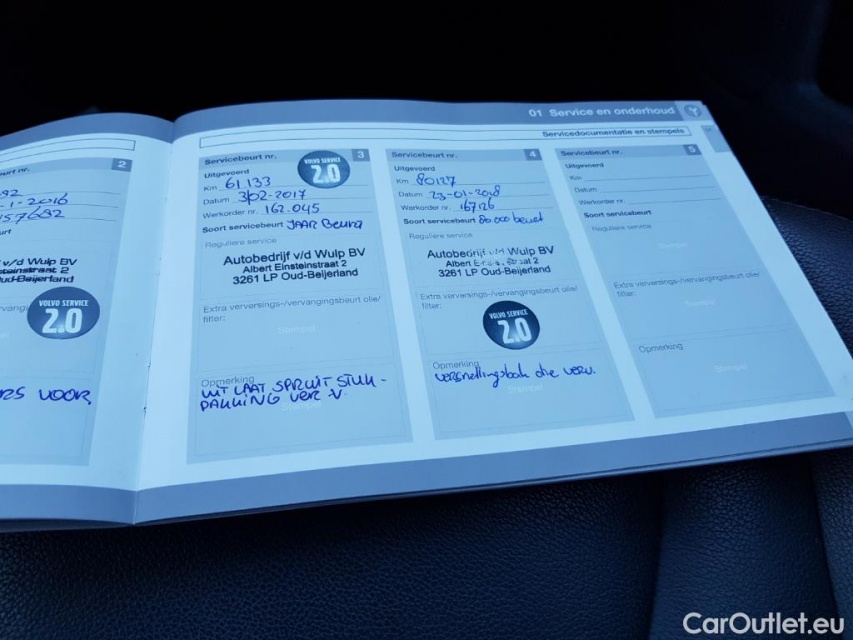 01 Service en onderhoud
Servicedocumentatie en stempels
2
1-2016
157692
v/d Wulp BV
VOLVO SERVICE
2.0
RS VOOR
Servicebeurt nr. 3
Uitgevoerd
Km 61 133
Datum 3/02-2017
Werkorder nr. 162.045
Soort servicebeurt JAAR Beurt
Reguliere service
VOLVO SERVICE
2.0
Autobedrijf v/d Wulp BV
Albert Einsteinstraat 2
3261 LP Oud-Beijerland
Extra verversings-/vervangingsbeurt olie/
filter:
Stempel
Opmerking
UIT LAAT SPRUIT STUK -
PAKKING VER.V
Servicebeurt nr. 4
Uitgevoerd
Km 80127
Datum 23-01-2018
Werkorder nr. 167126
Soort servicebeurt 80.000 beurt
Reguliere service
Autobedrijf v/d Wulp BV
3261 LP Oud-Beijerland
Extra verversings-/vervangingsbeurt olie/
filter:
VOLVO SERVICE
2.0
Opmerking
versnellingsbak olie verv.
Stempel
Servicebeurt nr. 5
Uitgevoerd
Km
Datum
Werkorder nr.
Soort servicebeurt
Reguliere service
Stempel
Extra verversings-/vervangingsbeurt olie/
filter:
Stempel
Opmerking
Stempel
CarOutlet.eu